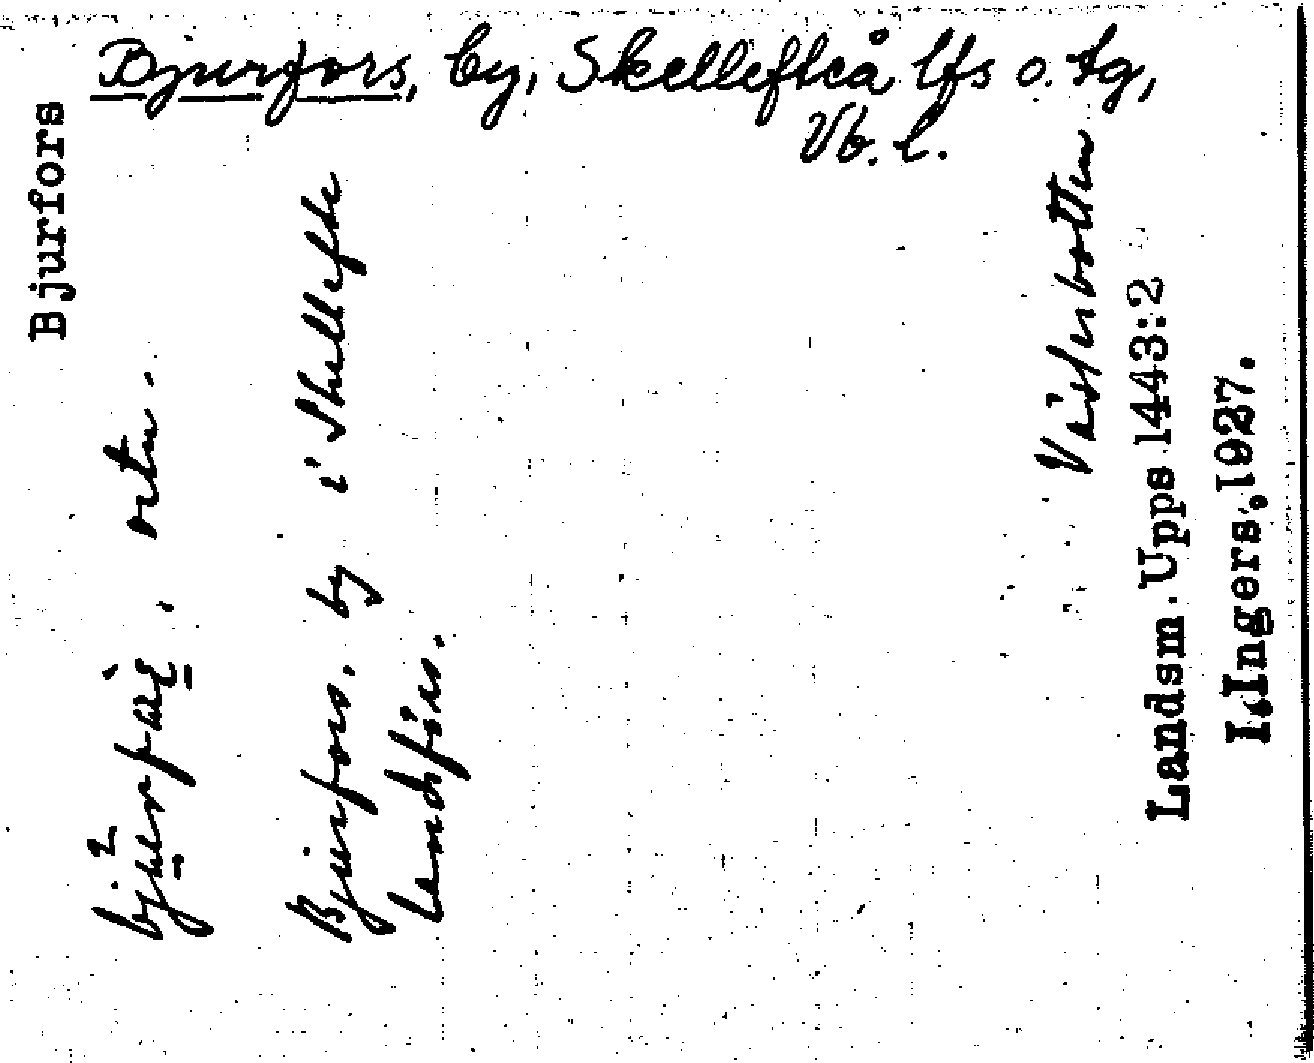 Bjurfors, by, Skellefteå lfs o. tg,
Vb. l.
Bjurfors
ortn.
Bjurfors, by i Skellefte
landsförs.
Västerbotten
Landsm. Upps 1443:2
I. Ingers, 1927.